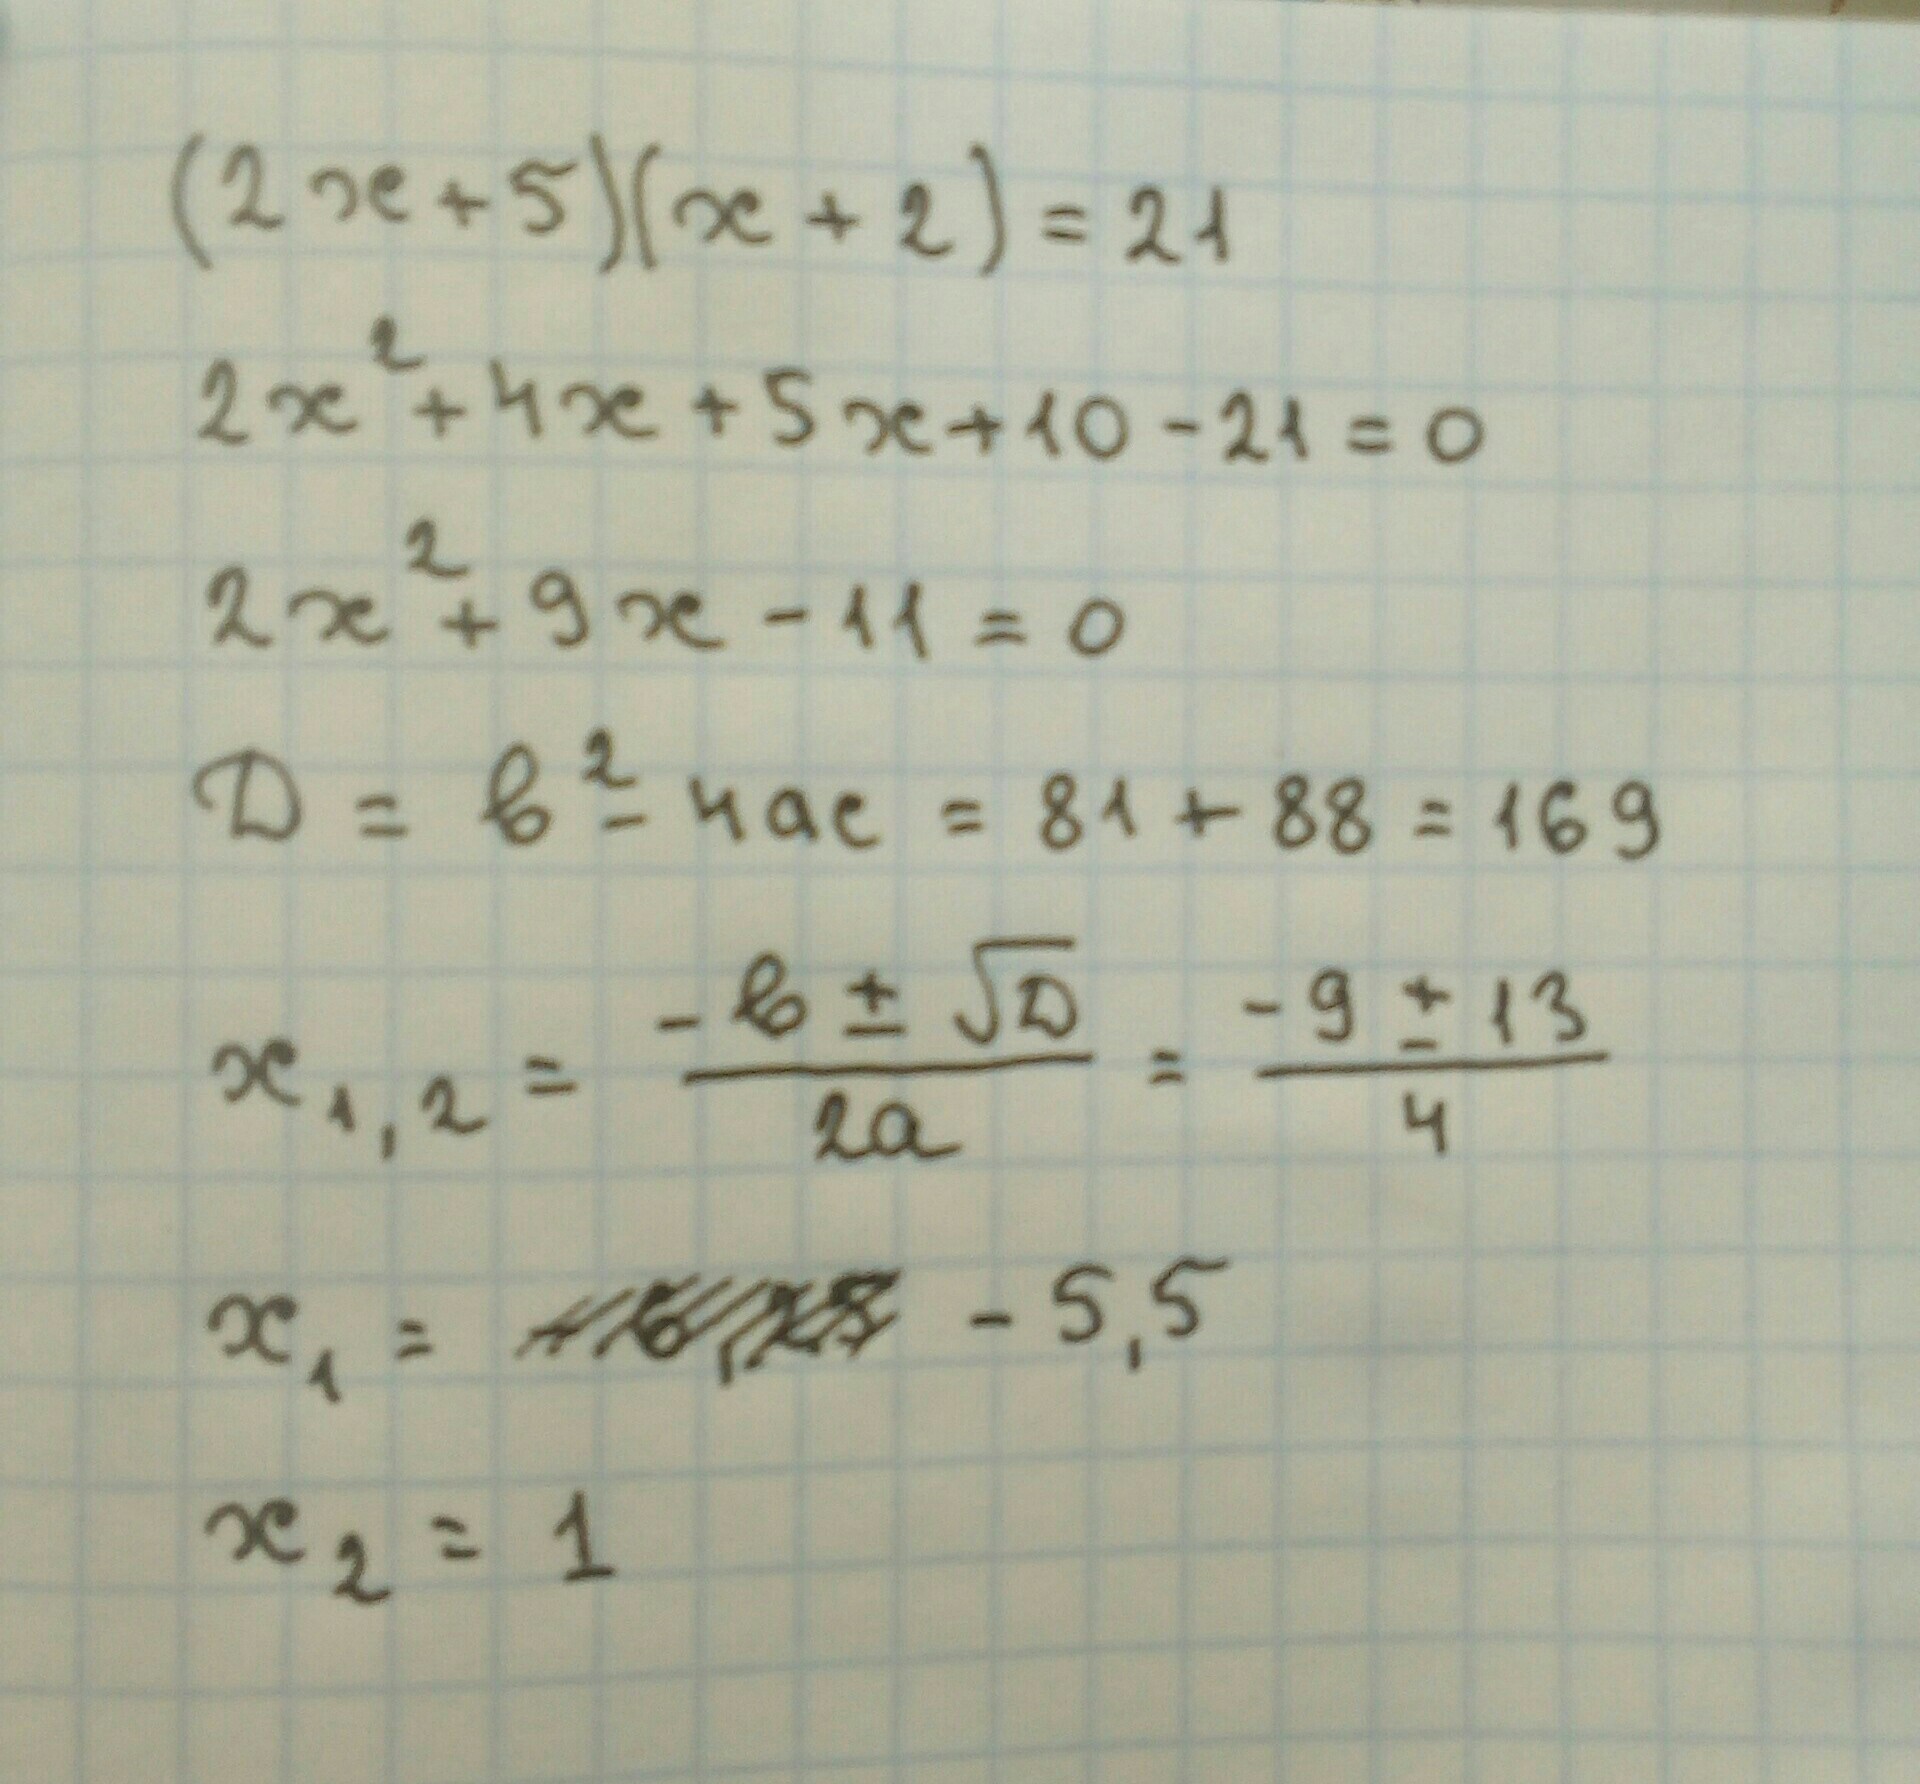 (2x+5)(x+2)=21
2x²+4x+5x+10-21=0
2x²+9x-11=0
D = b²-4ac = 81+88=169
x₁,₂ = (-b ± √D)/(2a) = (-9 ± 13)/4
x₁ = -5,5
x₂ = 1